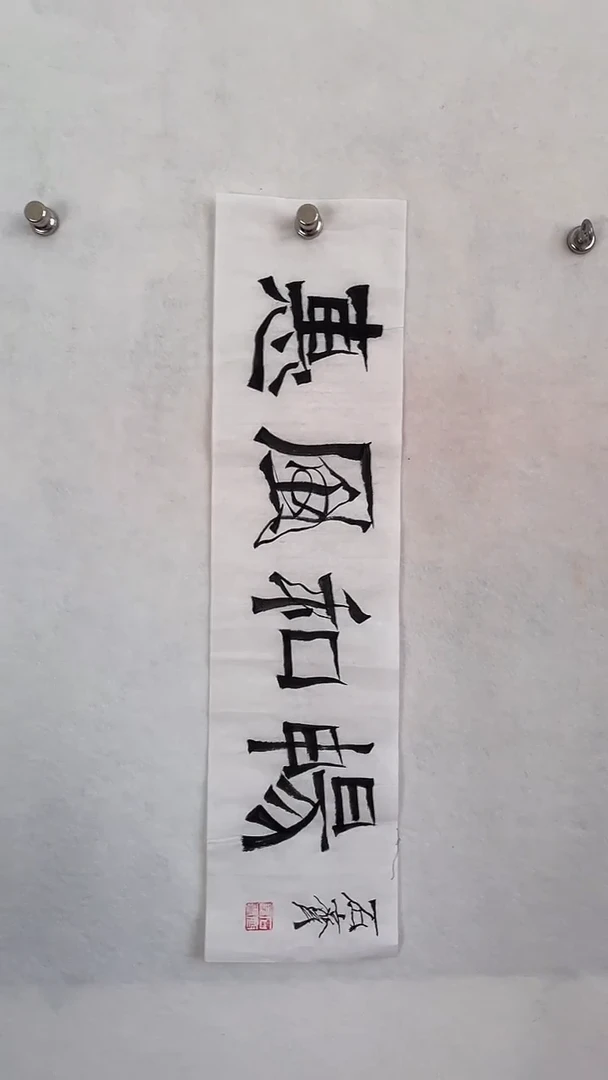 惠風和暢
石